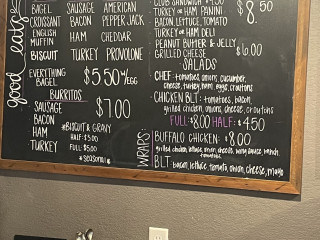 good eats
BAGEL SAUSAGE AMERICAN
CROISSANT BACON PEPPER JACK
ENGLISH MUFFIN HAM CHEDDAR
BISCUIT TURKEY PROVOLONE
EVERYTHING BAGEL $5.50 W/ EGG
BURRITOS
SAUSAGE
BACON $7.00
HAM
TURKEY
*BISCUIT & GRAVY
HALF: $3.00
FULL: $5.00
*SEASONAL
CLUB SANDWICH
TURKEY OR HAM PANINI $8.50
BACON, LETTUCE, TOMATO.
TURKEY OR HAM DELI
PEANUT BUTTER & JELLY
GRILLED CHEESE $6.00
SALADS
CHEF: tomatoes, onions, cucumber,
cheese, turkey, ham, eggs, croutons
CHICKEN BLT: tomatoes, bacon,
grilled chicken, onions, cheese, croutons
FULL: $8.00 HALF: $4.50
WRAPS:
BUFFALO CHICKEN: $8.00
grilled chicken, lettuce, onion, cheese, wing sauce, ranch,
tomatoes
BLT: bacon, lettuce, tomato, onion, cheese, mayo